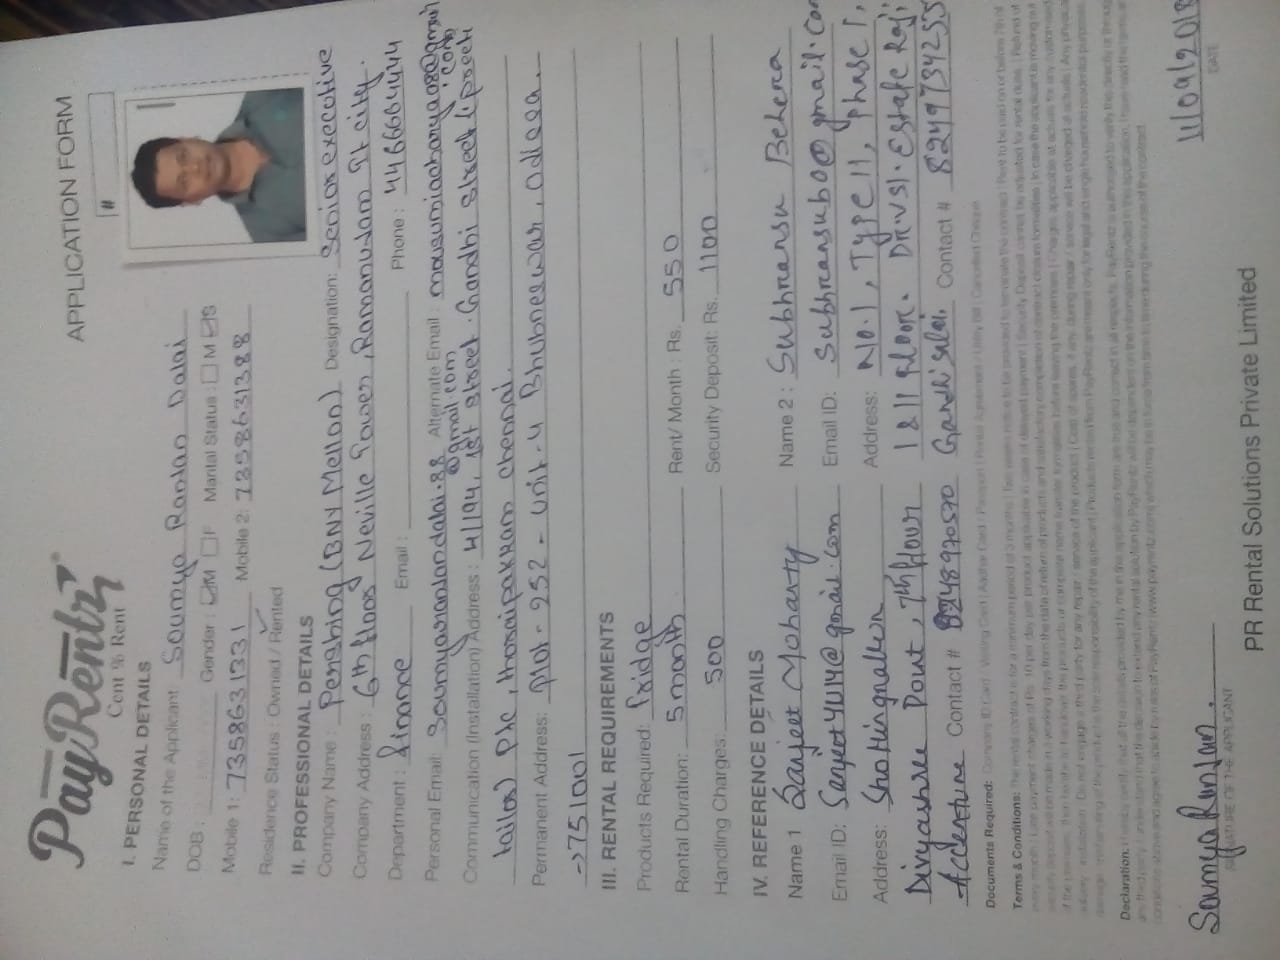 PayRentz
Cent % Rent
APPLICATION FORM
#
I. PERSONAL DETAILS
Name of the Applicant: Soumya Ranjan Dalai
DOB : Gender : M F Marital Status : M S
Mobile 1: 7358631331 Mobile 2: 7358631388
Residence Status : Owned / Rented
II. PROFESSIONAL DETAILS
Company Name : Pershing (BNY Mellon) Designation: Senior executive
Company Address : 6th floor Neville Tower, Ramanujam It city.
Department : finance Email : Phone : 4466664444
Personal Email: Soumyaranjandalai.88@gmail.com Alternate Email : mousumiacharya08@gmail.com
Communication (Installation) Address : 4/194, 1st street Gandhi street (preeti
tailor) Ptc, thoraipakkam chennai.
Permanent Address: plot - 252 - unit-4 Bhubneswar, Odissa.
→751001
III. RENTAL REQUIREMENTS
Products Required: fridge
Rental Duration: 5 month Rent/ Month : Rs. 550
Handling Charges: 500 Security Deposit: Rs. 1100
IV. REFERENCE DETAILS
Name 1 Sanjeet Mohanty Name 2 : Subhransu Behera
Email ID: Sanjeet4U14@gmail.com Email ID: Subhransub0@gmail.com
Address: Address: No.1, Type II, Phase I,
Divyashree Point, 7th flour I & II Floor. Dr.VSI. Estate Raji
Accenture Contact # 8248970570 Gandhi Salai. Contact # 8249734255
Documents Required: Company ID Card / Visiting Card | Aadhar Card / Passport | Rental Agreement / Utility Bill | Cancelled Cheque
Terms & Conditions: The rental contract is for a minimum period of 3 months | Two weeks notice to be provided to terminate the contract | Rent to be paid on or before 7th of
every month | Late payment charges of Rs. 10 per day per product applicable in case of delayed payment | Security Deposit cannot be adjusted for rental dues | Refund of
security deposit will be made in 3 working days from the date of return of products and satisfactory completion of contract closure formalities | In case the applicant is moving out
of the premises, then he/she to handover the products or complete name transfer formalities before leaving the premises | Charges applicable at actuals for any customised
delivery / installation Do not engage a third party for any repair / service of the product | Cost of spares, if any, during repair / service will be charged at actuals | Any physical
damage / mishandling of the product is the sole responsibility of the applicant | Products rented from PayRentz are meant only for legal and single household residential purposes.
Declaration: I hereby certify that all the details provided by me in this application form are true and correct in all respects. PayRentz is authorised to verify this directly or through
any third party. I understand that the decision to extend any rental solution by PayRentz will be dependent on the information provided in this application. I have read the terms and
conditions above and agree to abide by rules of PayRentz (www.payrentz.com) which may be in force from time to time during the course of the contract.
Soumya Ranjan. 11/09/2018
SIGNATURE OF THE APPLICANT DATE
PR Rental Solutions Private Limited